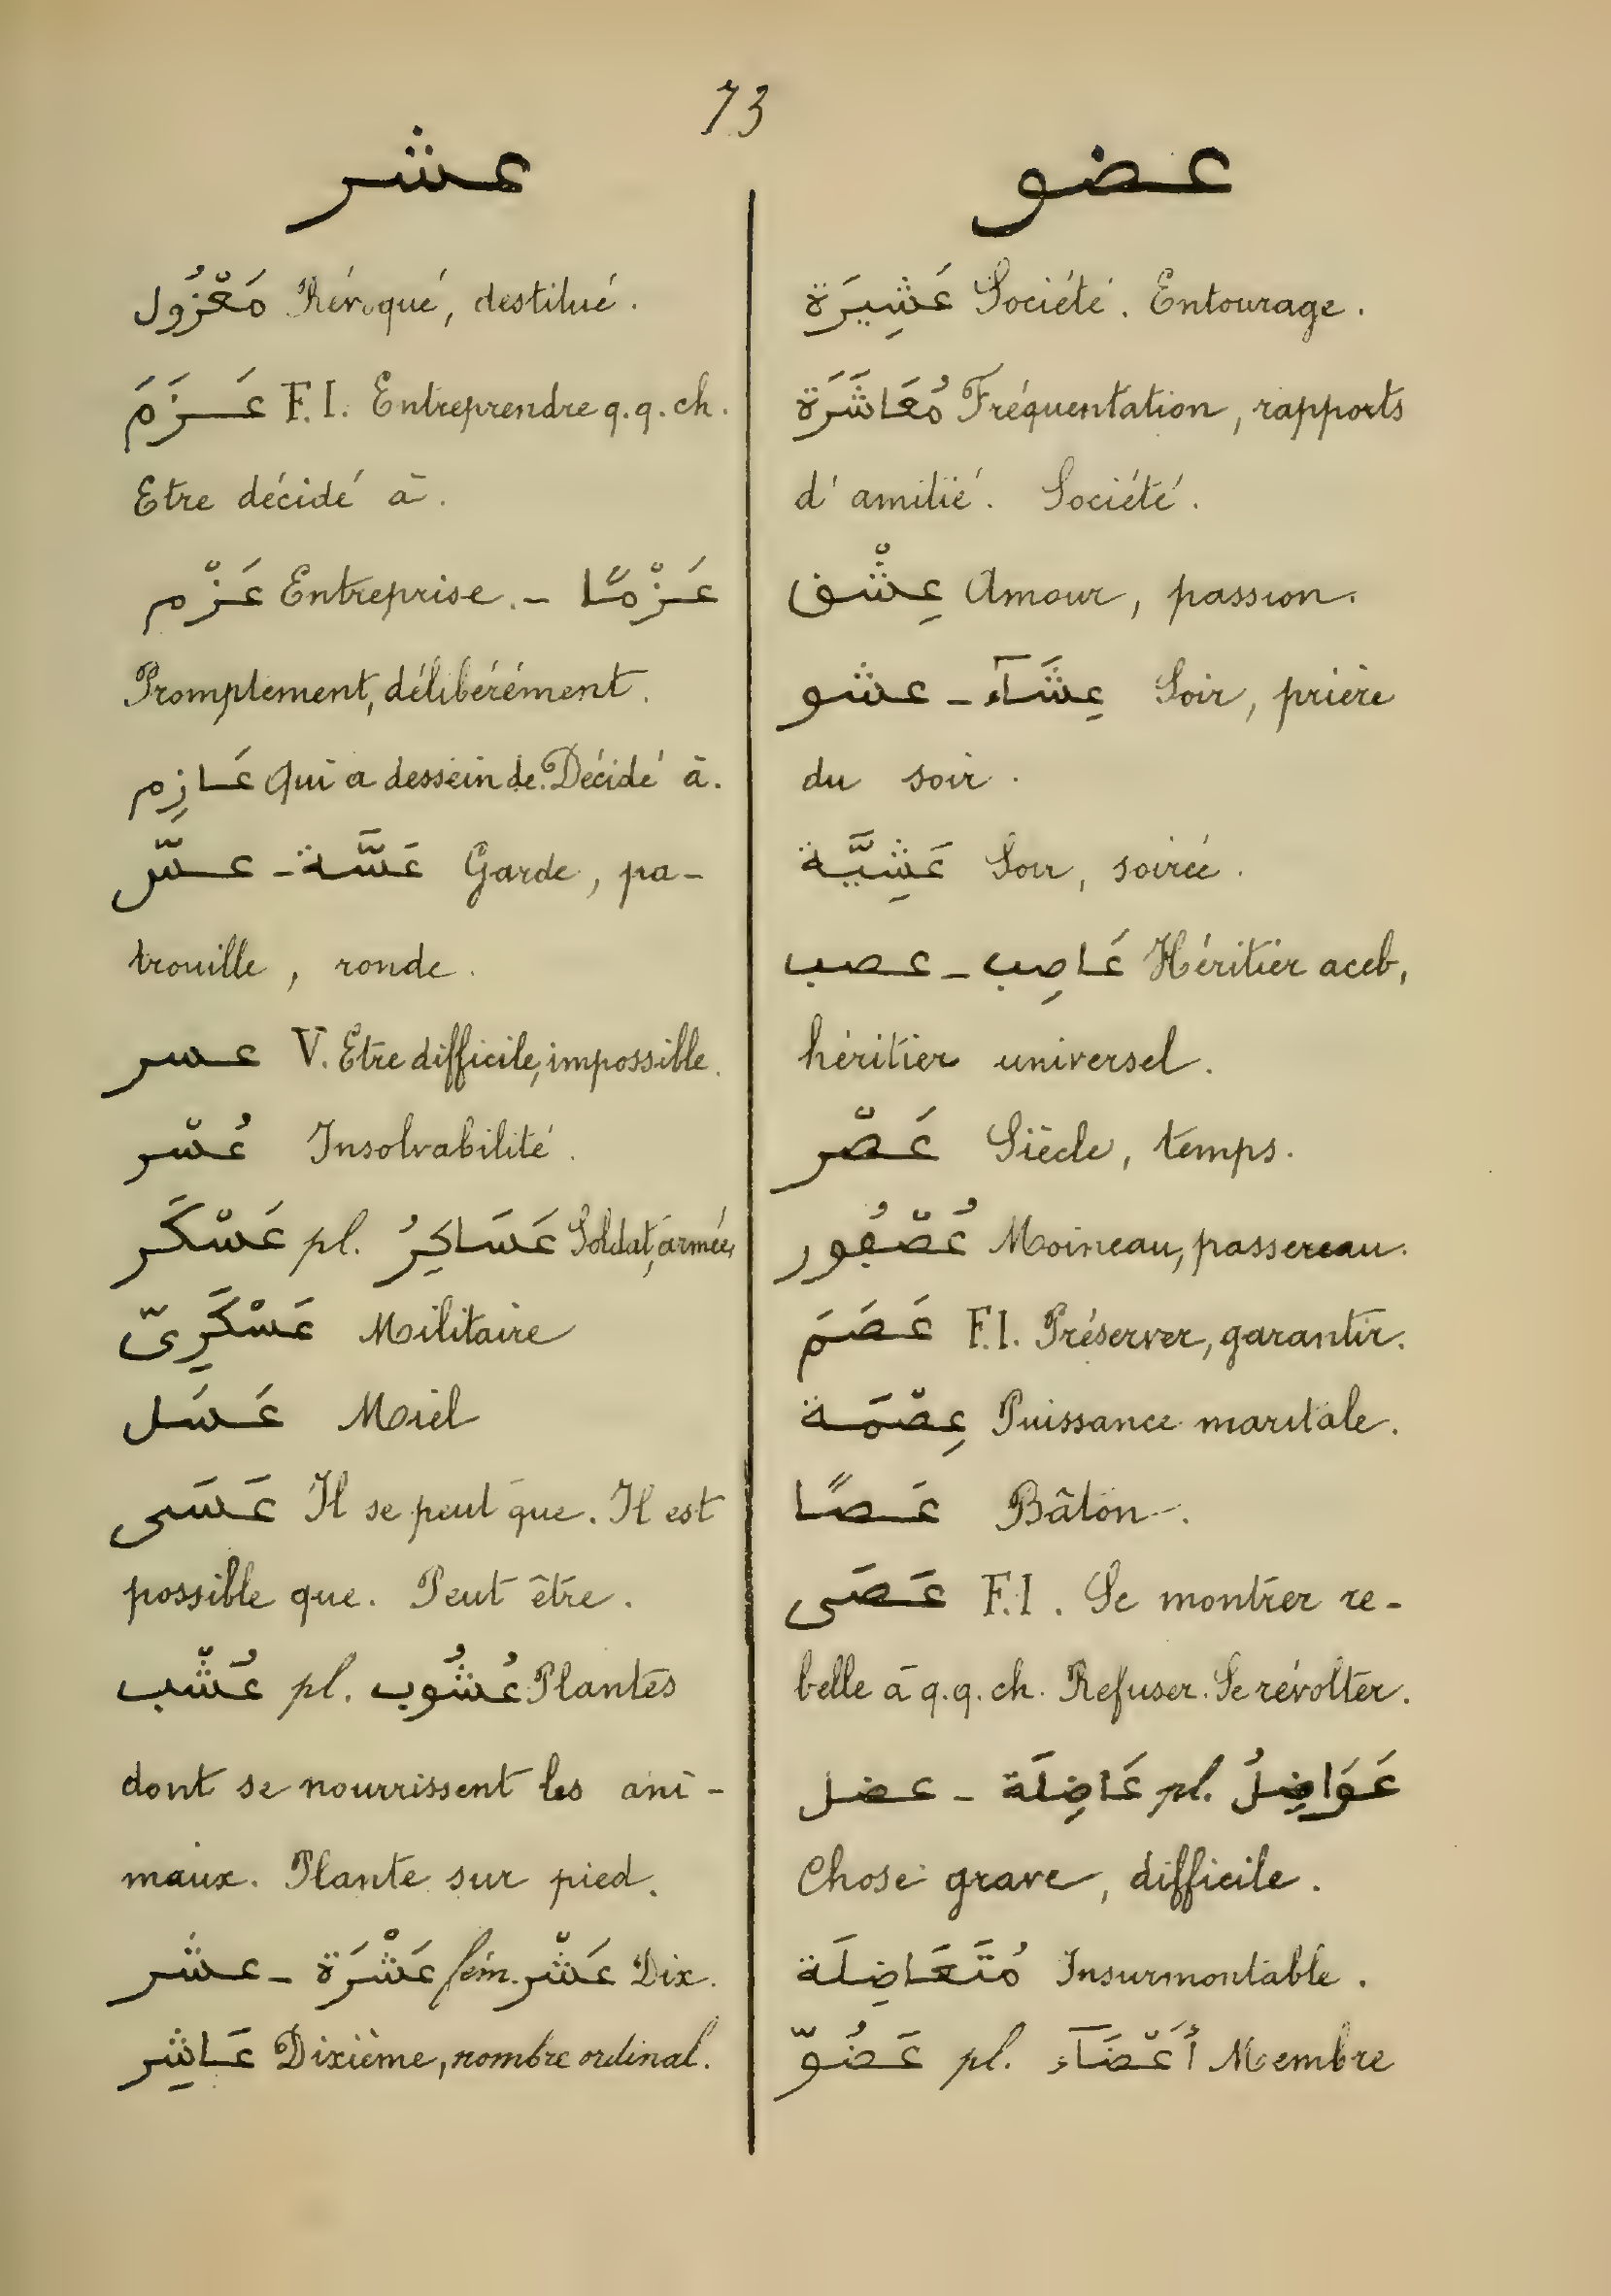 73
عشر
مَعْزُول Révoqué, destitué.
عَزَمَ F.I. Entreprendre q.q.ch.
Etre décidé à.
عَزْم Entreprise. - عَزْمًا
Promptement, délibérément.
عَازِم Qui a dessein de. Décidé à.
عسّ - عَسَّة Garde, pa-
trouille, ronde.
عسر V. Etre difficile, impossible.
عُسْر Insolvabilité.
عَسْكَر pl. عَسَاكِرُ Soldat, armée,
عَسْكَرِىّ Militaire
عَسَل Miel
عَسَى Il se peut que. Il est
possible que. Peut être.
عُشْب pl. عُشُوب Plantes
dont se nourrissent les ani-
maux. Plante sur pied.
عشر - عَشْرَة fém. عَشْر Dix.
عَاشِر Dixième, nombre ordinal.
عضو
عَشِيرَة Société. Entourage.
مُعَاشَرَة Fréquentation, rapports
d'amitié. Société.
عِشْق Amour, passion.
عشو - عِشَآء Soir, prière
du soir.
عَشِيَّة Soir, soirée.
عصب - عَاصِب Héritier aceb,
héritier universel.
عَصْر Siècle, temps.
عُصْفُور Moineau, passereau.
عَصَمَ F.I. Préserver, garantir.
عِصْمَة Puissance maritale.
عَصًا Bâton.
عَصَى F.I. Se montrer re-
belle à q.q.ch. Refuser. Se révolter.
عضل - عَاضِلَة pl. عَوَاضِلُ
Chose grave, difficile.
مُتَعَاضِلَة Insurmontable.
عَضُوّ pl. أَعْضَآء Membre